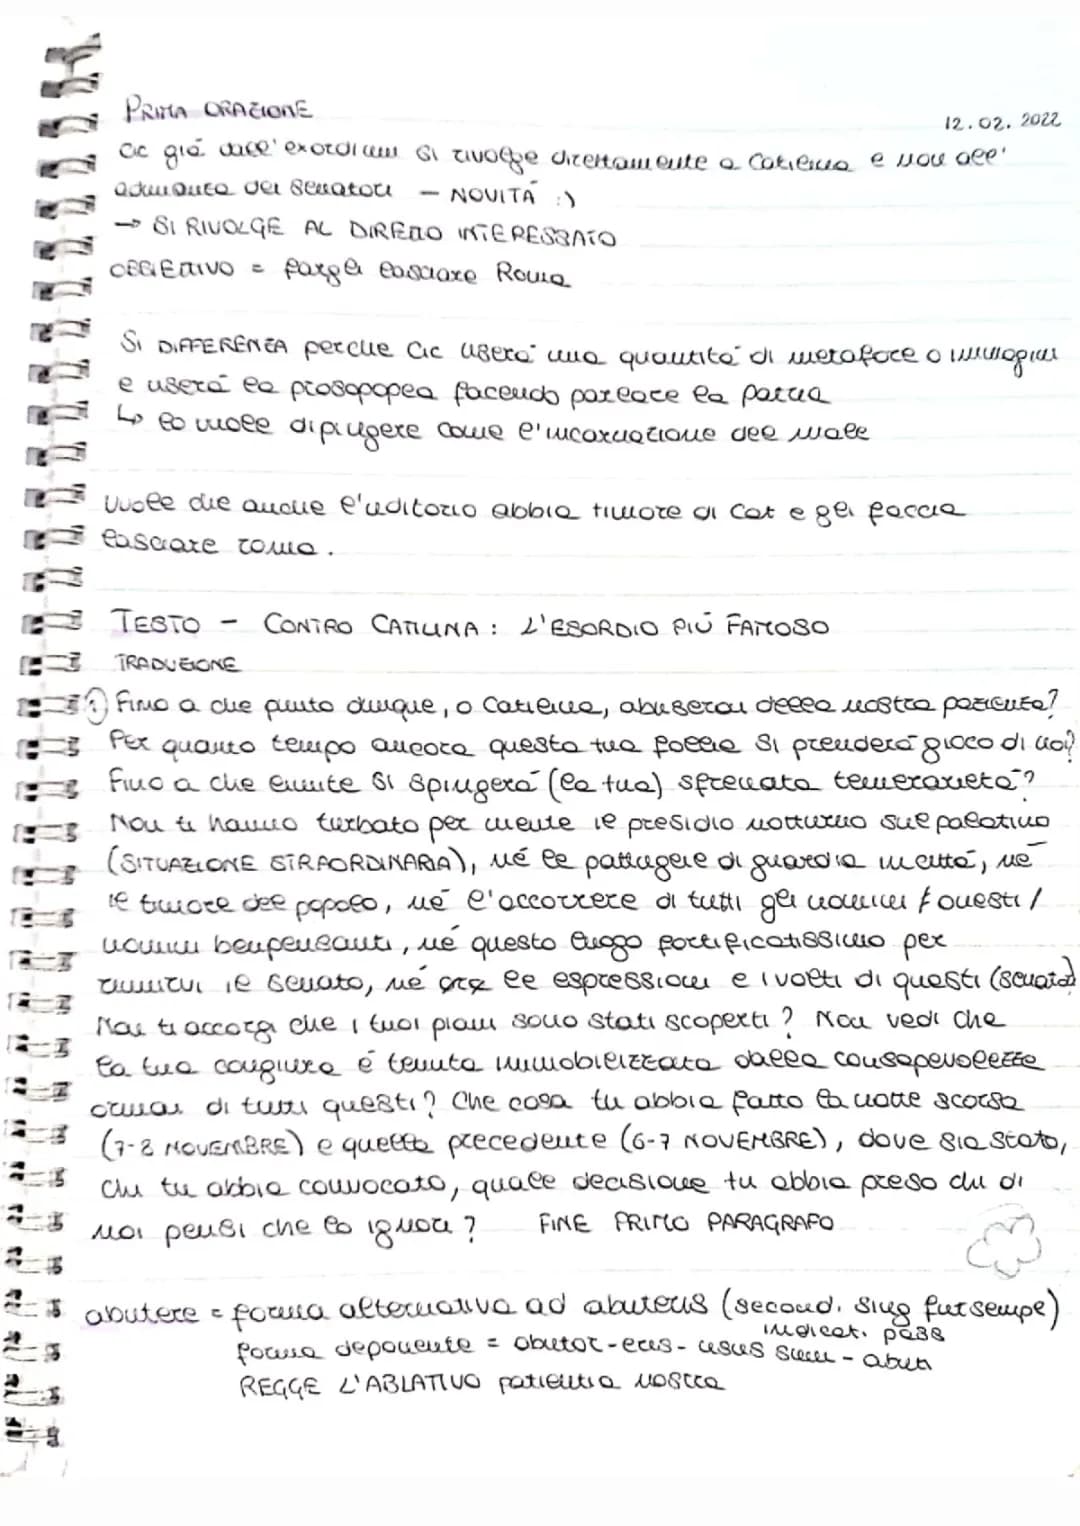 PRIMA ORAZIONE
12.02.2022
Cic già dall'exordium si rivolge direttamente a Catilina e non all'
adunanza dei senatori - NOVITÀ :)
→ SI RIVOLGE AL DIRETTO INTERESSATO
OBBIETTIVO = fargli lasciare Roma
SI DIFFERENZA perché Cic userà una quantità di metafore o immagini
e userà la prosopopea facendo parlare la patria
↳ lo vuole dipingere come l'incarnazione del male
Vuole che anche l'uditorio abbia timore di Cat e gli faccia
lasciare roma.
TESTO - CONTRO CATILINA: L'ESORDIO PIÙ FAMOSO
TRADUZIONE
① Fino a che punto dunque, o Catilina, abuserai della nostra pazienza?
Per quanto tempo ancora questa tua follia si prenderà gioco di noi?
Fino a che limite si spingerà (la tua) sfrenata temerarietà?
Non ti hanno turbato per niente il presidio notturno sul palatino
(SITUAZIONE STRAORDINARIA), né le pattuglie di guardia in città, né
il timore del popolo, né l'accorrere di tutti gli uomini onesti /
uomini benpensanti, né questo luogo fortificatissimo per
riunirvi il senato, né le espressioni e i volti di questi (senatori)
Non ti accorgi che i tuoi piani sono stati scoperti? Non vedi che
la tua congiura è tenuta immobilizzata dalla consapevolezza
ormai di tutti questi? Che cosa tu abbia fatto la notte scorsa
(7-8 NOVEMBRE) e quella precedente (6-7 NOVEMBRE), dove sia stato,
chi tu abbia convocato, quale decisione tu abbia preso chi di
noi pensi che lo ignori? FINE PRIMO PARAGRAFO
abutere = forma alternativa ad abuteris (second. sing fut sempl)
indicat. pass
forma deponente = abutor-eris-usus sum-abuti
REGGE L'ABLATIVO patientia nostra